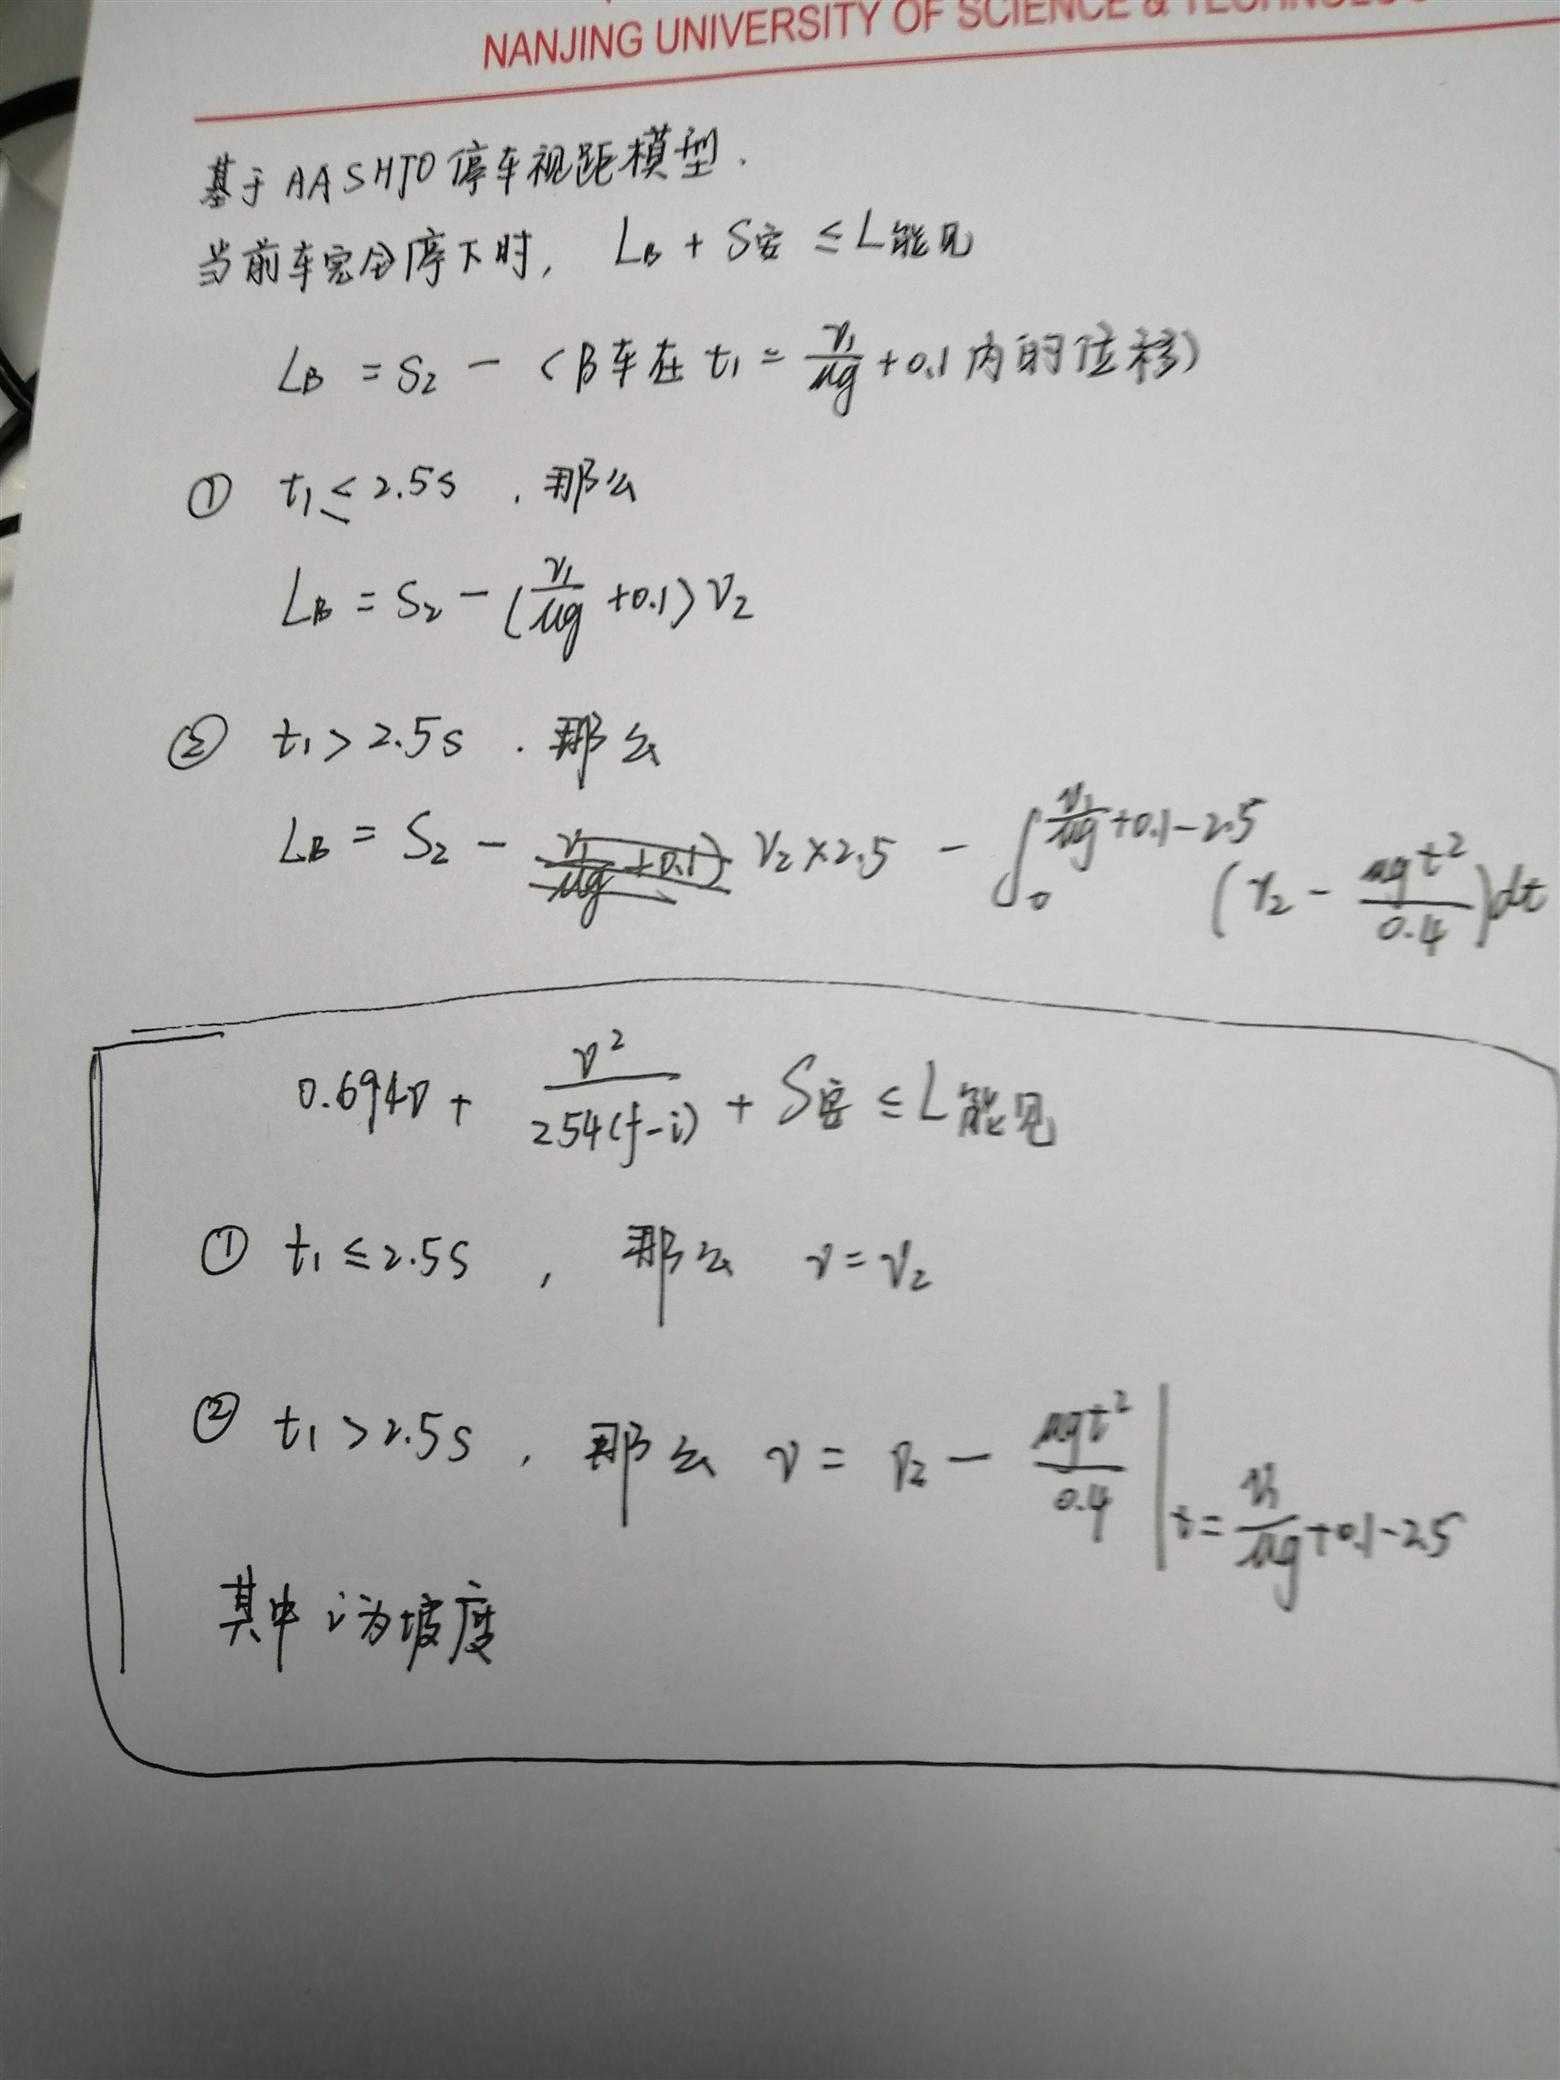 NANJING UNIVERSITY OF SCIENCE & TECHNOLOG
基于AASHTO停车视距模型.
当前车完全停下时, L_B + S安 ≤ L能见
L_B = S_2 - (B车在 t_1 = v_1/μg + 0.1 内的位移)
① t_1 ≤ 2.5s , 那么
L_B = S_2 - (v_1/μg + 0.1) v_2
② t_1 > 2.5s . 那么
L_B = S_2 - v_2 × 2.5 - ∫_0^{v_1/μg + 0.1 - 2.5} (v_2 - μgt²/0.4) dt
0.694v + v²/254(f-i) + S安 ≤ L能见
① t_1 ≤ 2.5s , 那么 v = v_2
② t_1 > 2.5s , 那么 v = v_2 - μgt²/0.4 |_{t = v_1/μg + 0.1 - 2.5}
其中 i为坡度